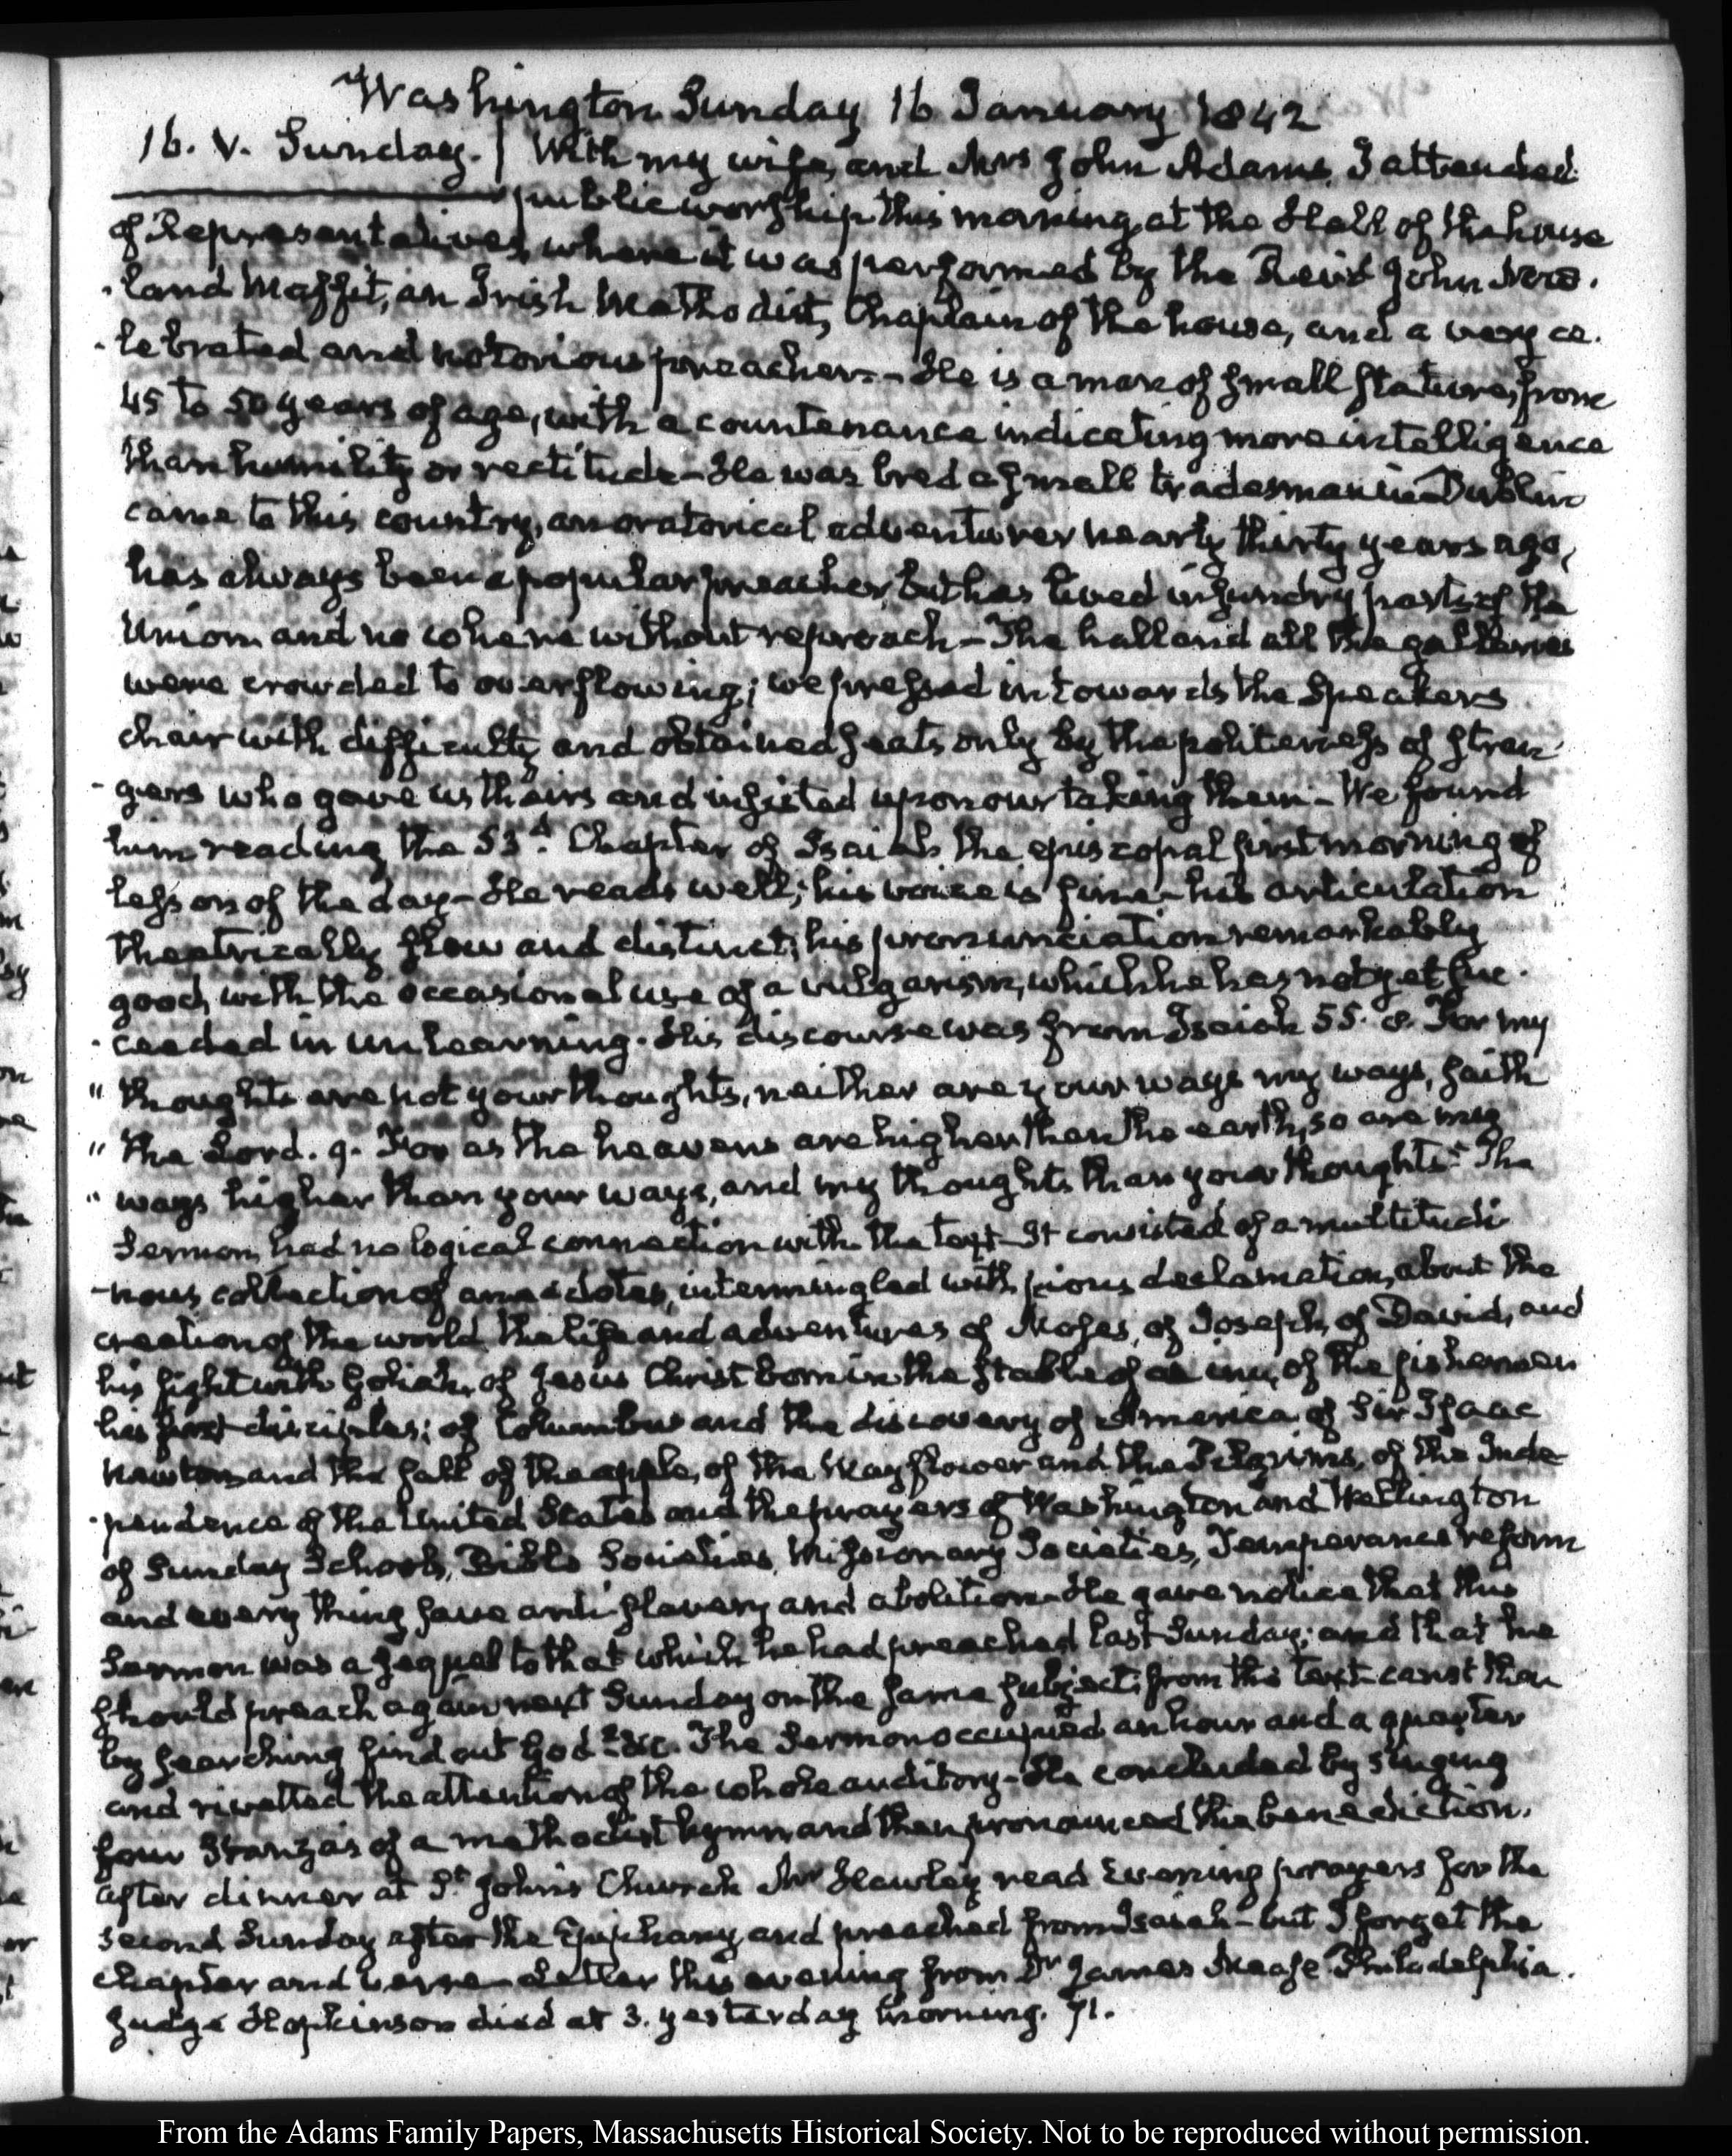 Washington Sunday 16 January 1842
16. V. Sunday. | With my wife, and Mrs John Adams, I attended
public worship this morning, at the Hall of the house
of Representatives, where it was performed by the Revd John New-
-land Maffit, an Irish Methodist, Chaplain of the house, and a very ce-
-lebrated and notorious preacher. - He is a man of small stature, from
45 to 50 years of age, with a countenance indicating more intelligence
than humility or rectitude - He was bred a small tradesman in Dublin
came to this country, an oratorical adventurer nearly thirty years ago,
has always been a popular preacher, but has lived in sundry parts of the
Union and no where without reproach - The hall and all the galleries
were crowded to overflowing; we pressed in towards the Speakers
chair with difficulty and obtained seats only by the politeness of stran-
-gers who gave us theirs and insisted upon our taking them - We found
him reading the 53d. Chapter of Isaiah the episcopal first morning of
lesson of the day - He reads well; his voice is fine - his articulation
theatrically slow and distinct; his pronunciation remarkably
good, with the occasional use of a vulgarism, which he has not yet suc-
-ceeded in unlearning. His discourse was from Isaiah 55. 8. For my
" thoughts are not your thoughts, neither are your ways my ways, saith
" the Lord. 9. For as the heavens are higher than the earth, so are my
" ways higher than your ways, and my thoughts than your thoughts." The
Sermon had no logical connection with the text - It consisted of a multitudi-
-nous collection of anecdotes, intermingled with pious declamation, about the
creation of the world, the life and adventures of Moses, of Joseph, of David, and
his fight with Goliah, of Jesus Christ born in the stable of an inn, of the fishermen
his first disciples; of Columbus and the discovery of America, of Sir Isaac
Newton and the fall of the apple, of the Mayflower and the Pilgrims, of the Inde-
-pendence of the United States and the prayers of Washington and Wellington
of Sunday Schools, Bible Societies, Missionary Societies, Temperance reform
and every thing save anti-slavery and abolition - He gave notice that this
Sermon was a sequel to that which he had preached last Sunday; and that he
should preach again next Sunday on the same subject: from the text canst thou
by searching find out God? &c. The Sermon occupied an hour and a quarter
and rivetted the attention of the whole auditory - He concluded by singing
four Stanzas of a methodist hymn and then pronounced the benediction.
After dinner at St. John's Church Mr Hawley read Evening prayers for the
second Sunday after the Epiphany and preached from Isaiah - but I forget the
chapter and verse - Letter this evening from Dr James Mease Philadelphia.
Judge Hopkinson died at 3. yesterday morning. 71.
From the Adams Family Papers, Massachusetts Historical Society. Not to be reproduced without permission.